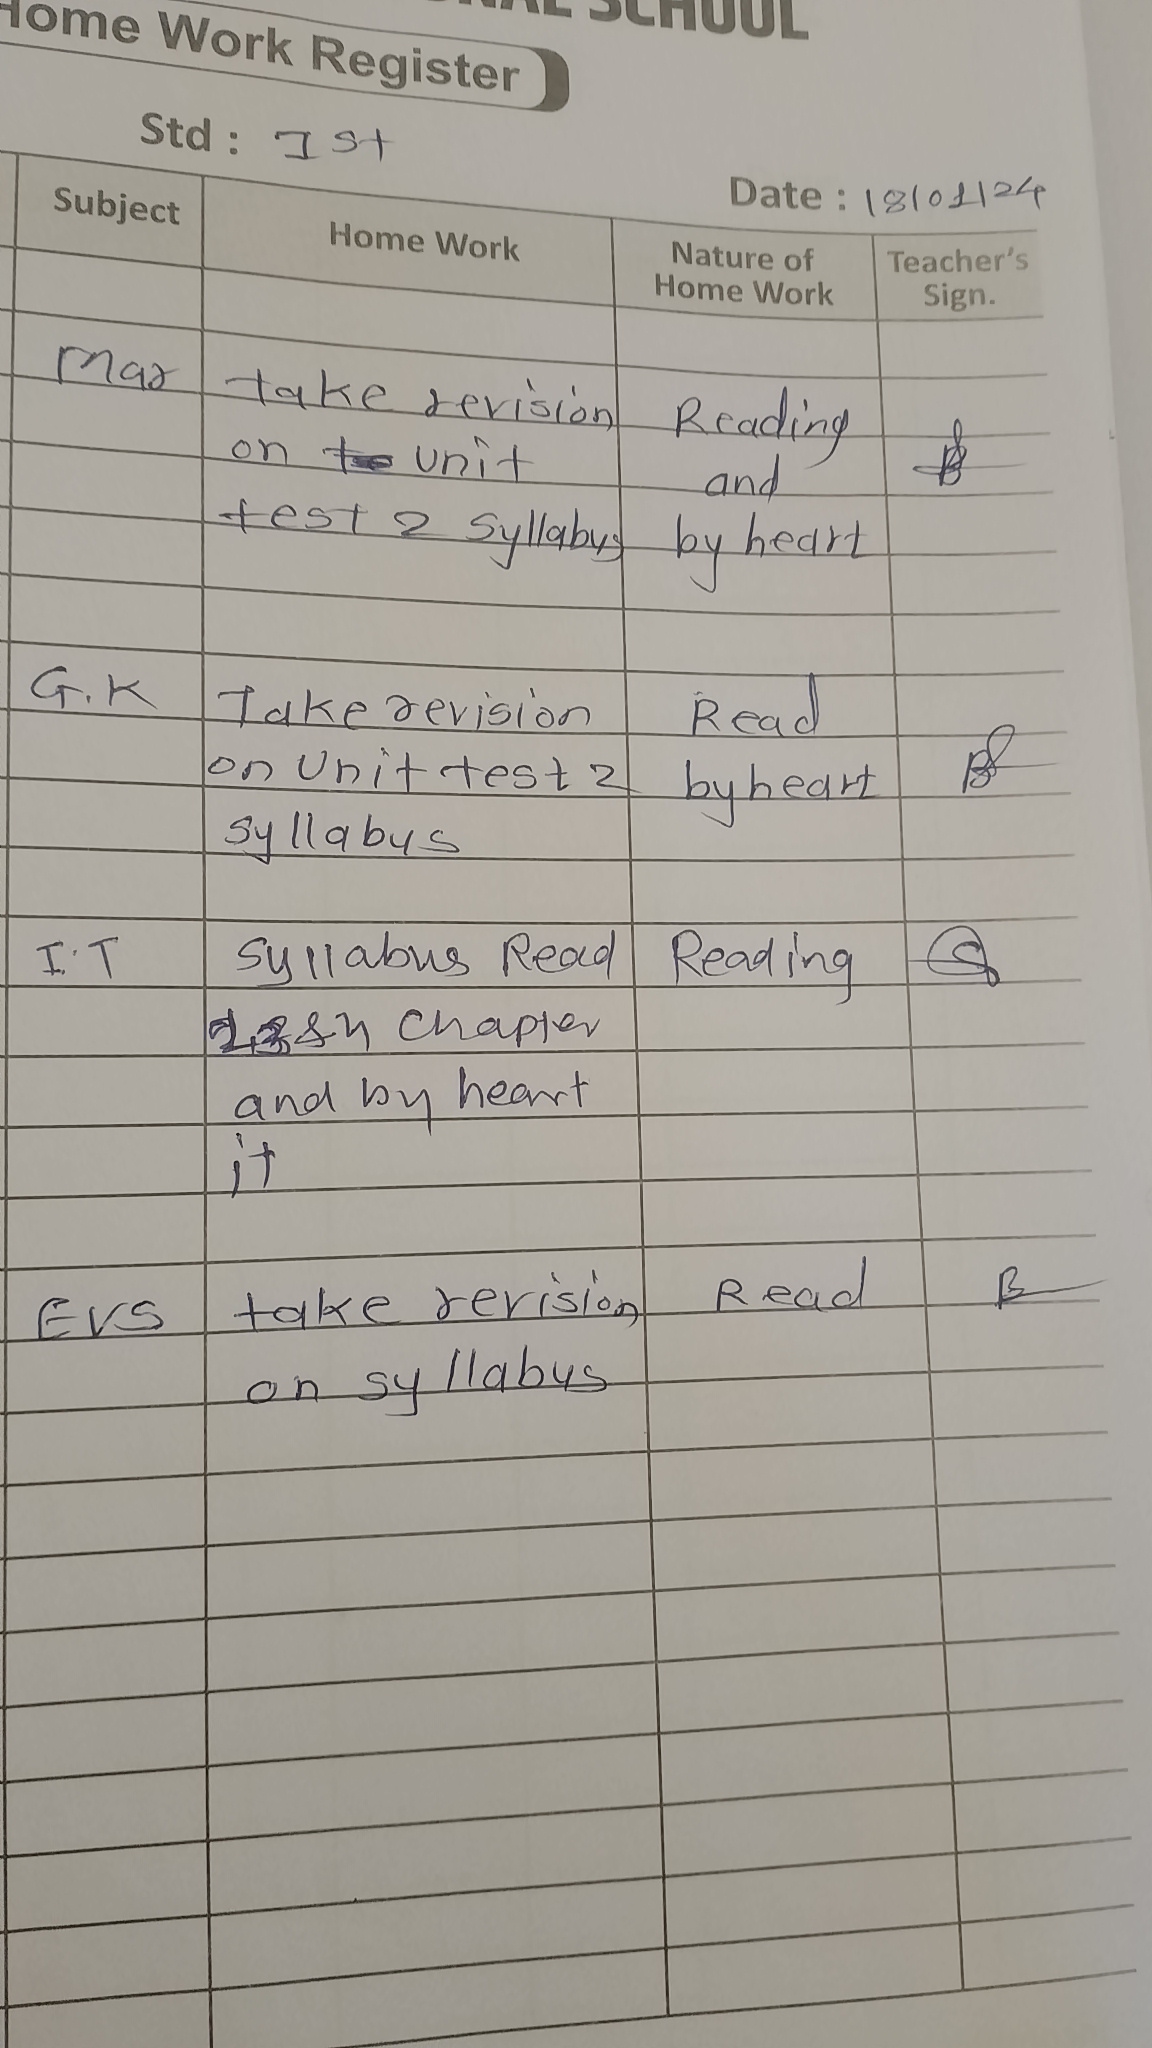 SCHOOL
Home Work Register
Std : Ist
Date : 18/01/24
Subject Home Work Nature of Home Work Teacher's Sign.
Mar take revision Reading
on unit and
test 2 syllabus by heart
G.K Take revision Read
on Unit test 2 by heart
syllabus
I.T Syllabus Read Reading
&4 chapter
and by heart
it
EVS take revision Read
on syllabus